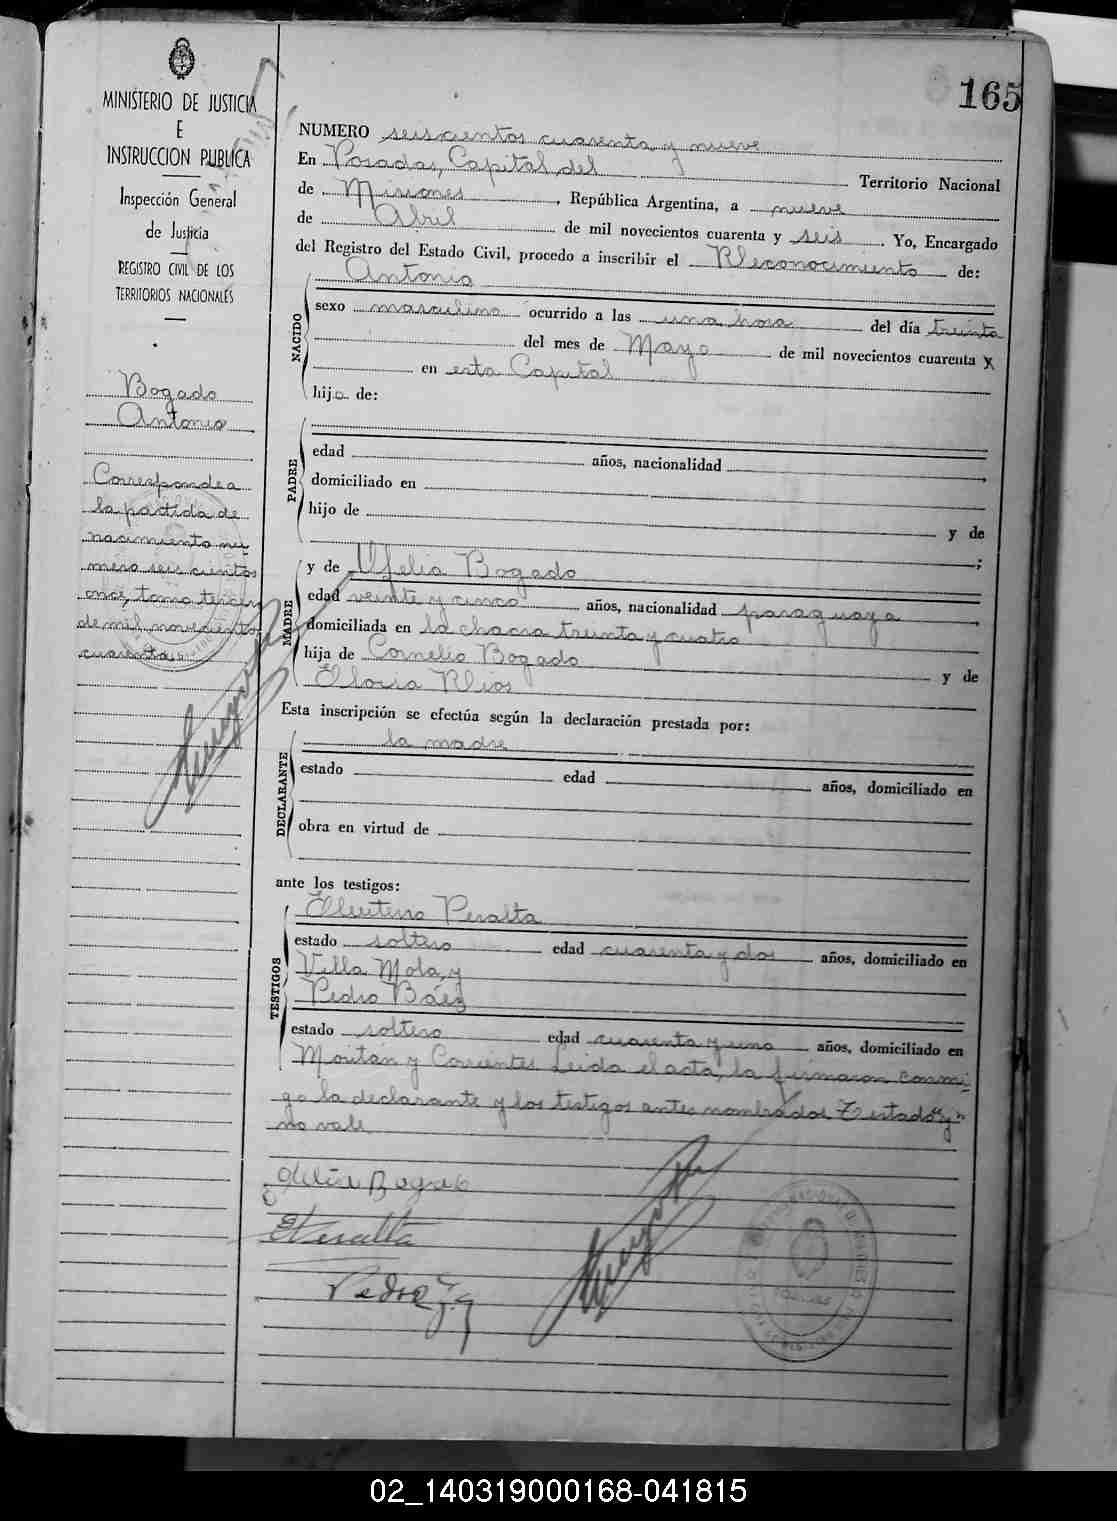 165
MINISTERIO DE JUSTICIA
E
INSTRUCCION PUBLICA
Inspección General
de Justicia
REGISTRO CIVIL DE LOS
TERRITORIOS NACIONALES
Bogado
Antonio
Corresponde a
la partida de
nacimiento nu
mero seis cientos
once, tomo tercero
de mil novecientos
cuarenta
NUMERO seiscientos cuarenta y nueve
En Posadas, Capital del Territorio Nacional
de Misiones, República Argentina, a nueve
de Abril de mil novecientos cuarenta y seis. Yo, Encargado
del Registro del Estado Civil, procedo a inscribir el Reconocimiento de:
Antonio
NACIDO
sexo masculino ocurrido a las una hora del día treinta
del mes de Mayo de mil novecientos cuarenta y
en esta Capital
hijo de:
PADRE
edad años, nacionalidad
domiciliado en
hijo de y de
;
MADRE
y de Ofelia Bogado
edad veinte y cinco años, nacionalidad paraguaya
domiciliada en la chacra treinta y cuatro
hija de Cornelio Bogado y de
Eloisa Rios
Esta inscripción se efectúa según la declaración prestada por:
DECLARANTE
la madre
estado edad años, domiciliado en
obra en virtud de
ante los testigos:
TESTIGOS
Eleuterio Peralta
estado soltero edad cuarenta y dos años, domiciliado en
Villa Mola, y
Pedro Báez
estado soltero edad cuarenta y uno años, domiciliado en
y Corrientes Leida el acta, la firmaron conmi-
go la declarante y los testigos antes nombrados Testado "y"
no vale
Bogado
EPeralta
Pedro
02_140319000168-041815